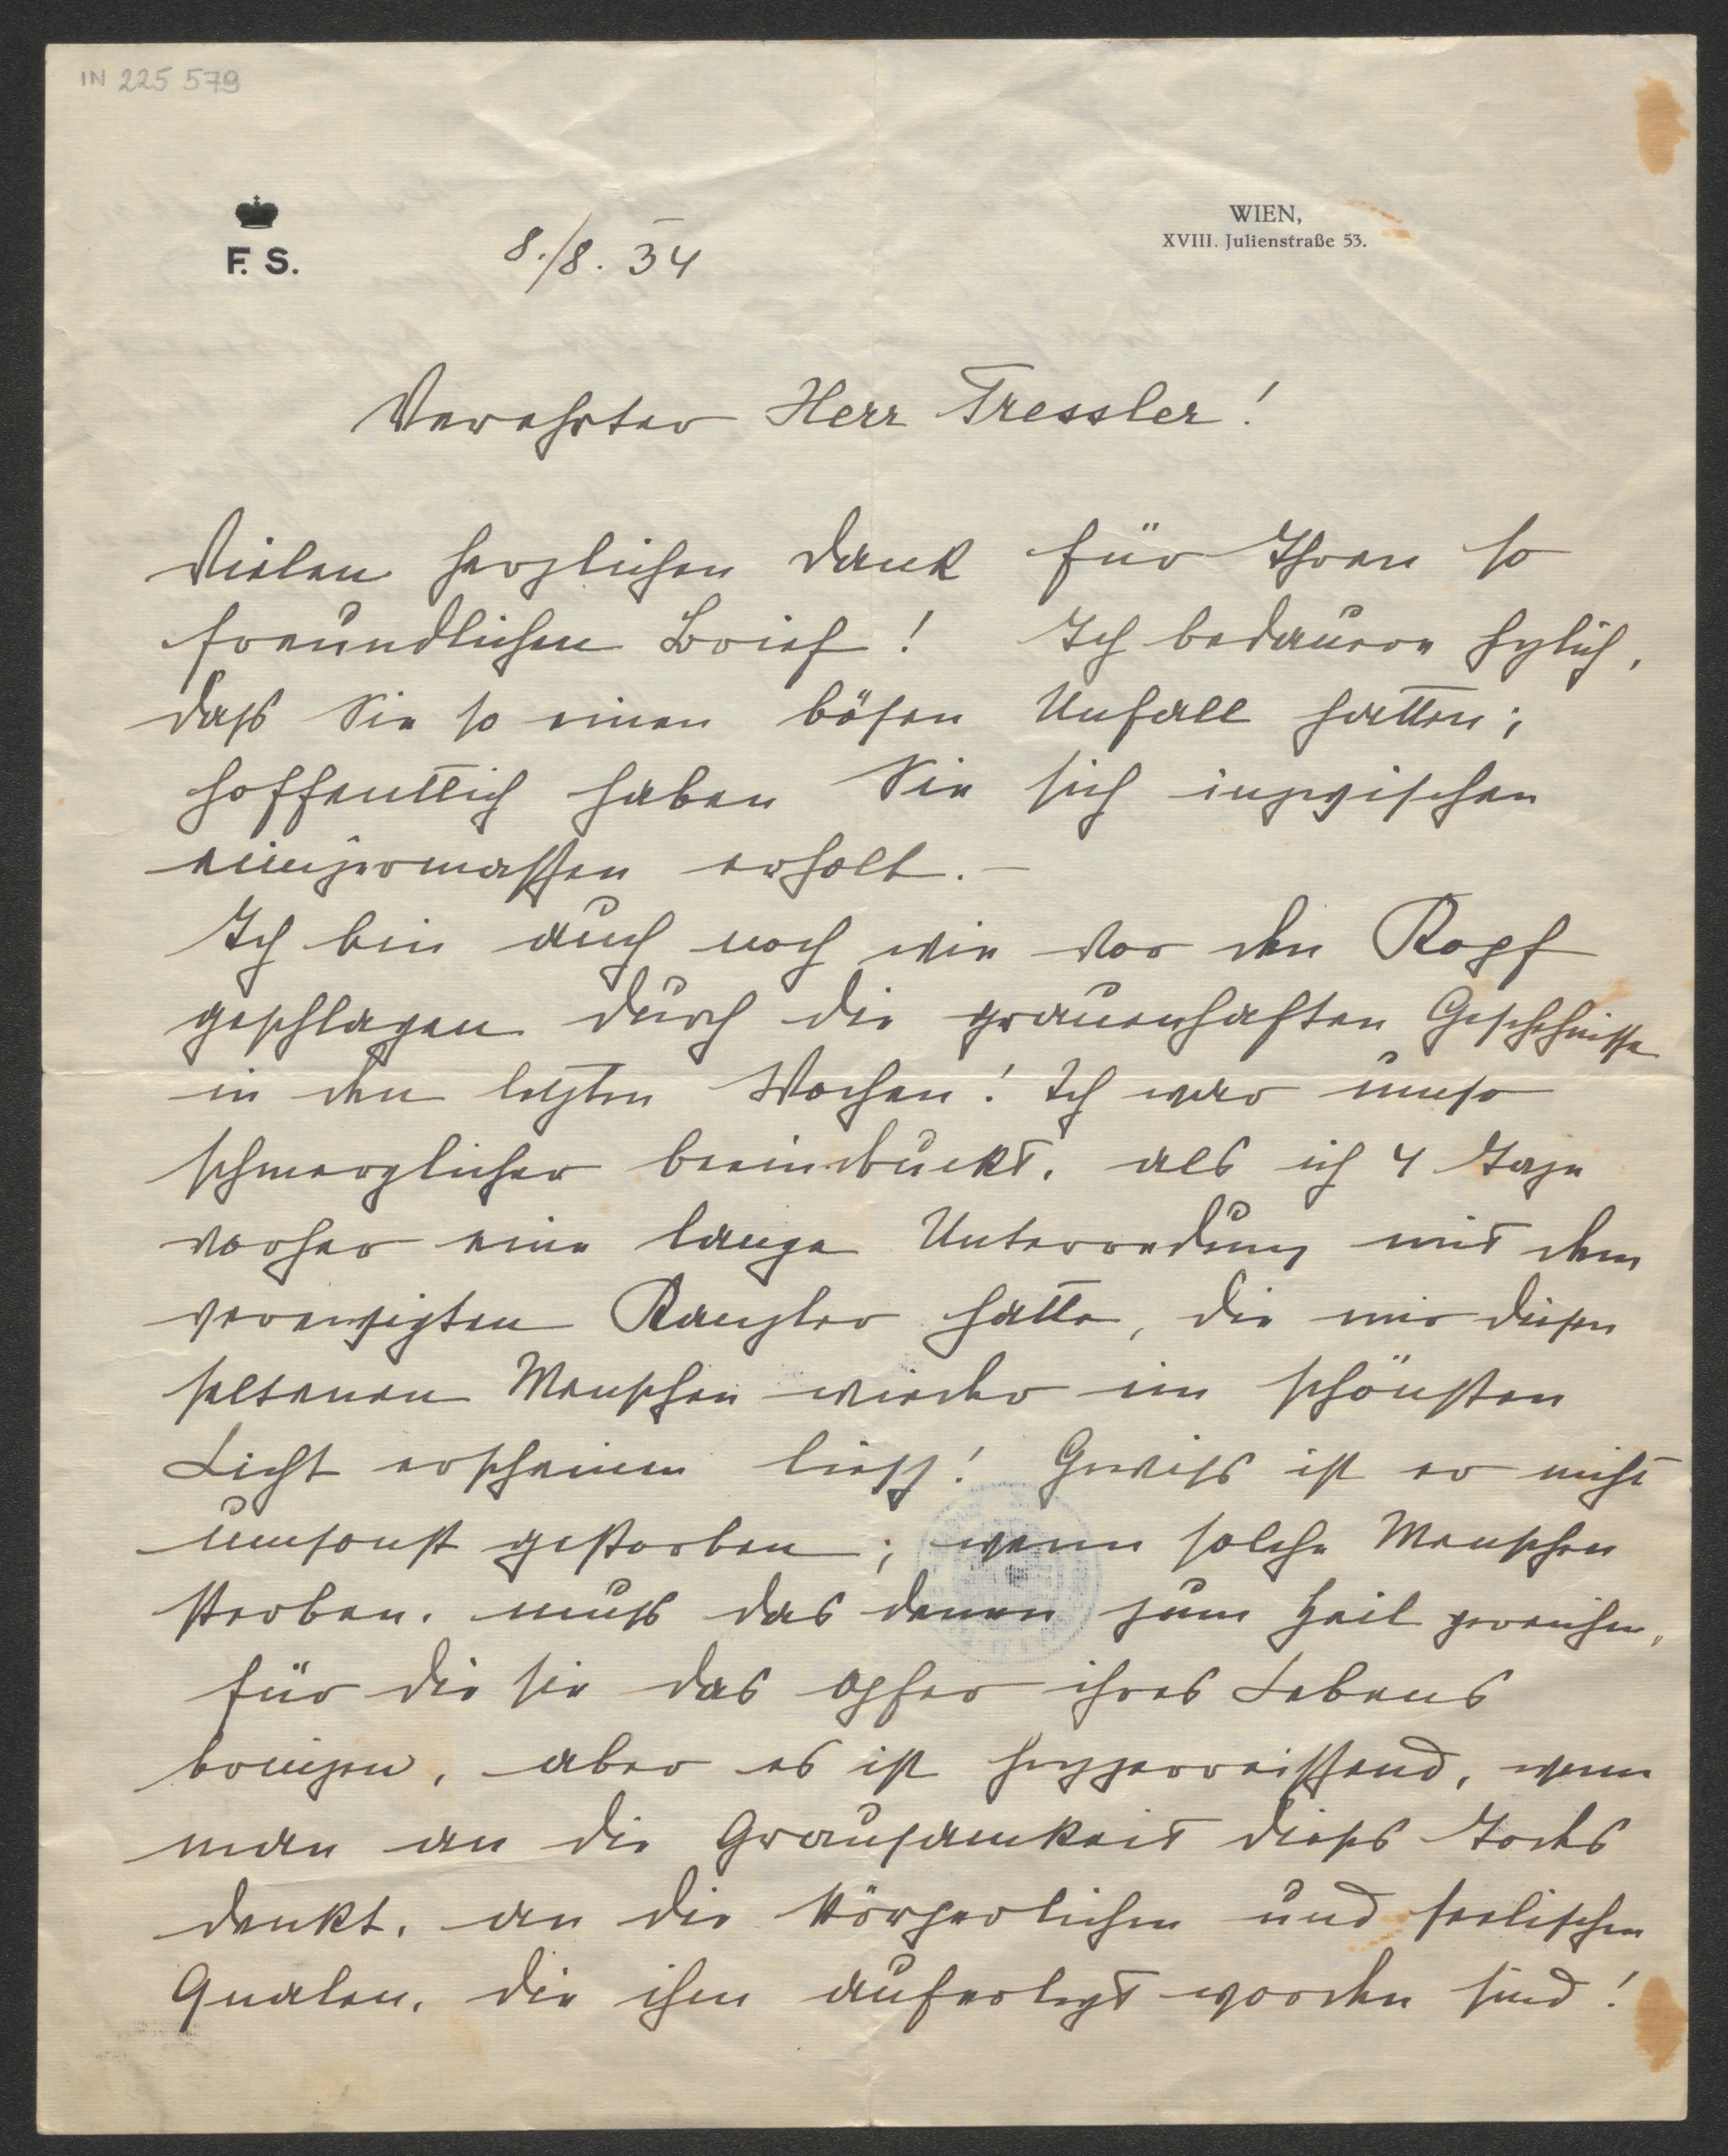 IN 225 579
F. S.
8./8. 34
WIEN,
XVIII. Julienstraße 53.
Verehrter Herr Tressler!
Vielen herzlichen Dank für Ihren so
freundlichen Brief! Ich bedauere hzlich,
dass Sie so einen bösen Unfall hatten;
hoffentlich haben Sie sich inzwischen
einigermassen erholt.–
Ich bin auch noch wie vor den Kopf
geschlagen durch die grauenhaften Geschehnisse
in den letzten Wochen! Ich war umso
schmerzlicher beeindruckt, als ich 4 Tage
vorher eine lange Unterredung mit dem
verewigten Kanzler hatte, die mir diesen
seltenen Menschen wieder im schönsten
Licht erscheinen liess! Gewiss ist er nicht
umsonst gestorben; wenn solche Menschen
sterben, muss das denen zum Heil gereichen,
für die sie das Opfer ihres Lebens
bringen, aber es ist herzzerreissend, wenn
man an die Grausamkeit dieses Todes
denkt, an die körperlichen und seelischen
Qualen, die ihm auferlegt worden sind!